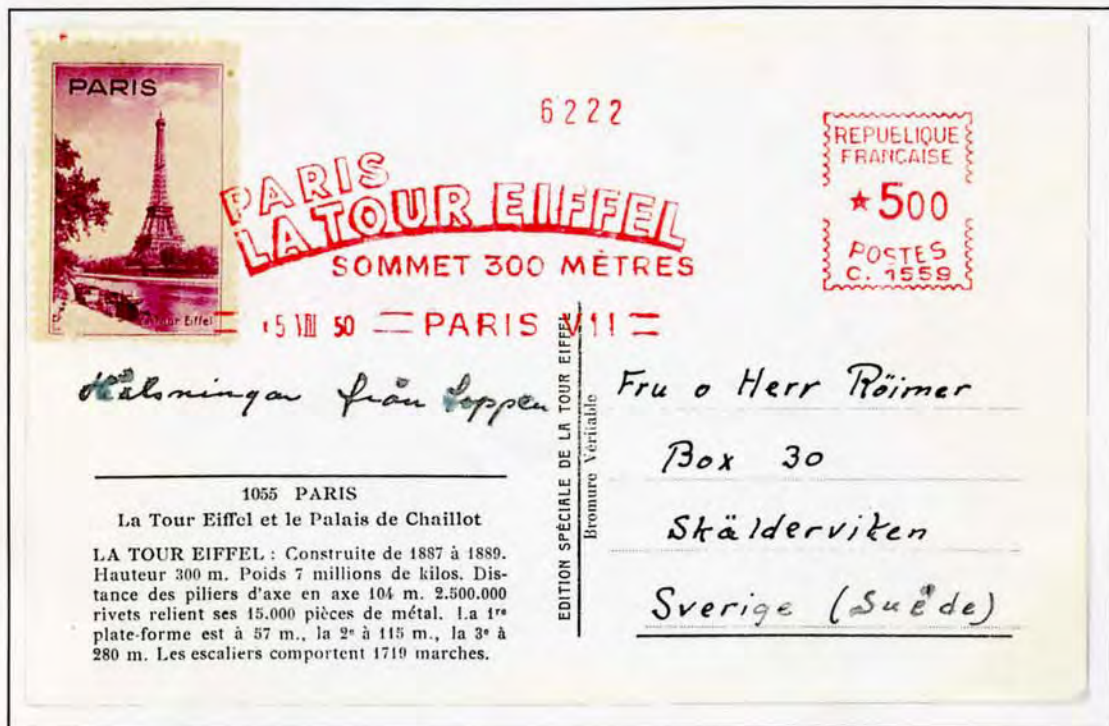 PARIS
La Tour Eiffel
6222
PARIS
LA TOUR EIFFEL
SOMMET 300 MÈTRES
15 VIII 50 PARIS VII
REPUBLIQUE
FRANCAISE
★500
POSTES
C. 1559
Hälsningar från Loppen
1055 PARIS
La Tour Eiffel et le Palais de Chaillot
LA TOUR EIFFEL : Construite de 1887 à 1889.
Hauteur 300 m. Poids 7 millions de kilos. Dis-
tance des piliers d'axe en axe 104 m. 2.500.000
rivets relient ses 15.000 pièces de métal. La 1re
plate-forme est à 57 m., la 2e à 115 m., la 3e à
280 m. Les escaliers comportent 1719 marches.
EDITION SPÉCIALE DE LA TOUR EIFFEL
Bromure Véritable
Fru o Herr Röimer
Box 30
Skälderviken
Sverige (Suède)